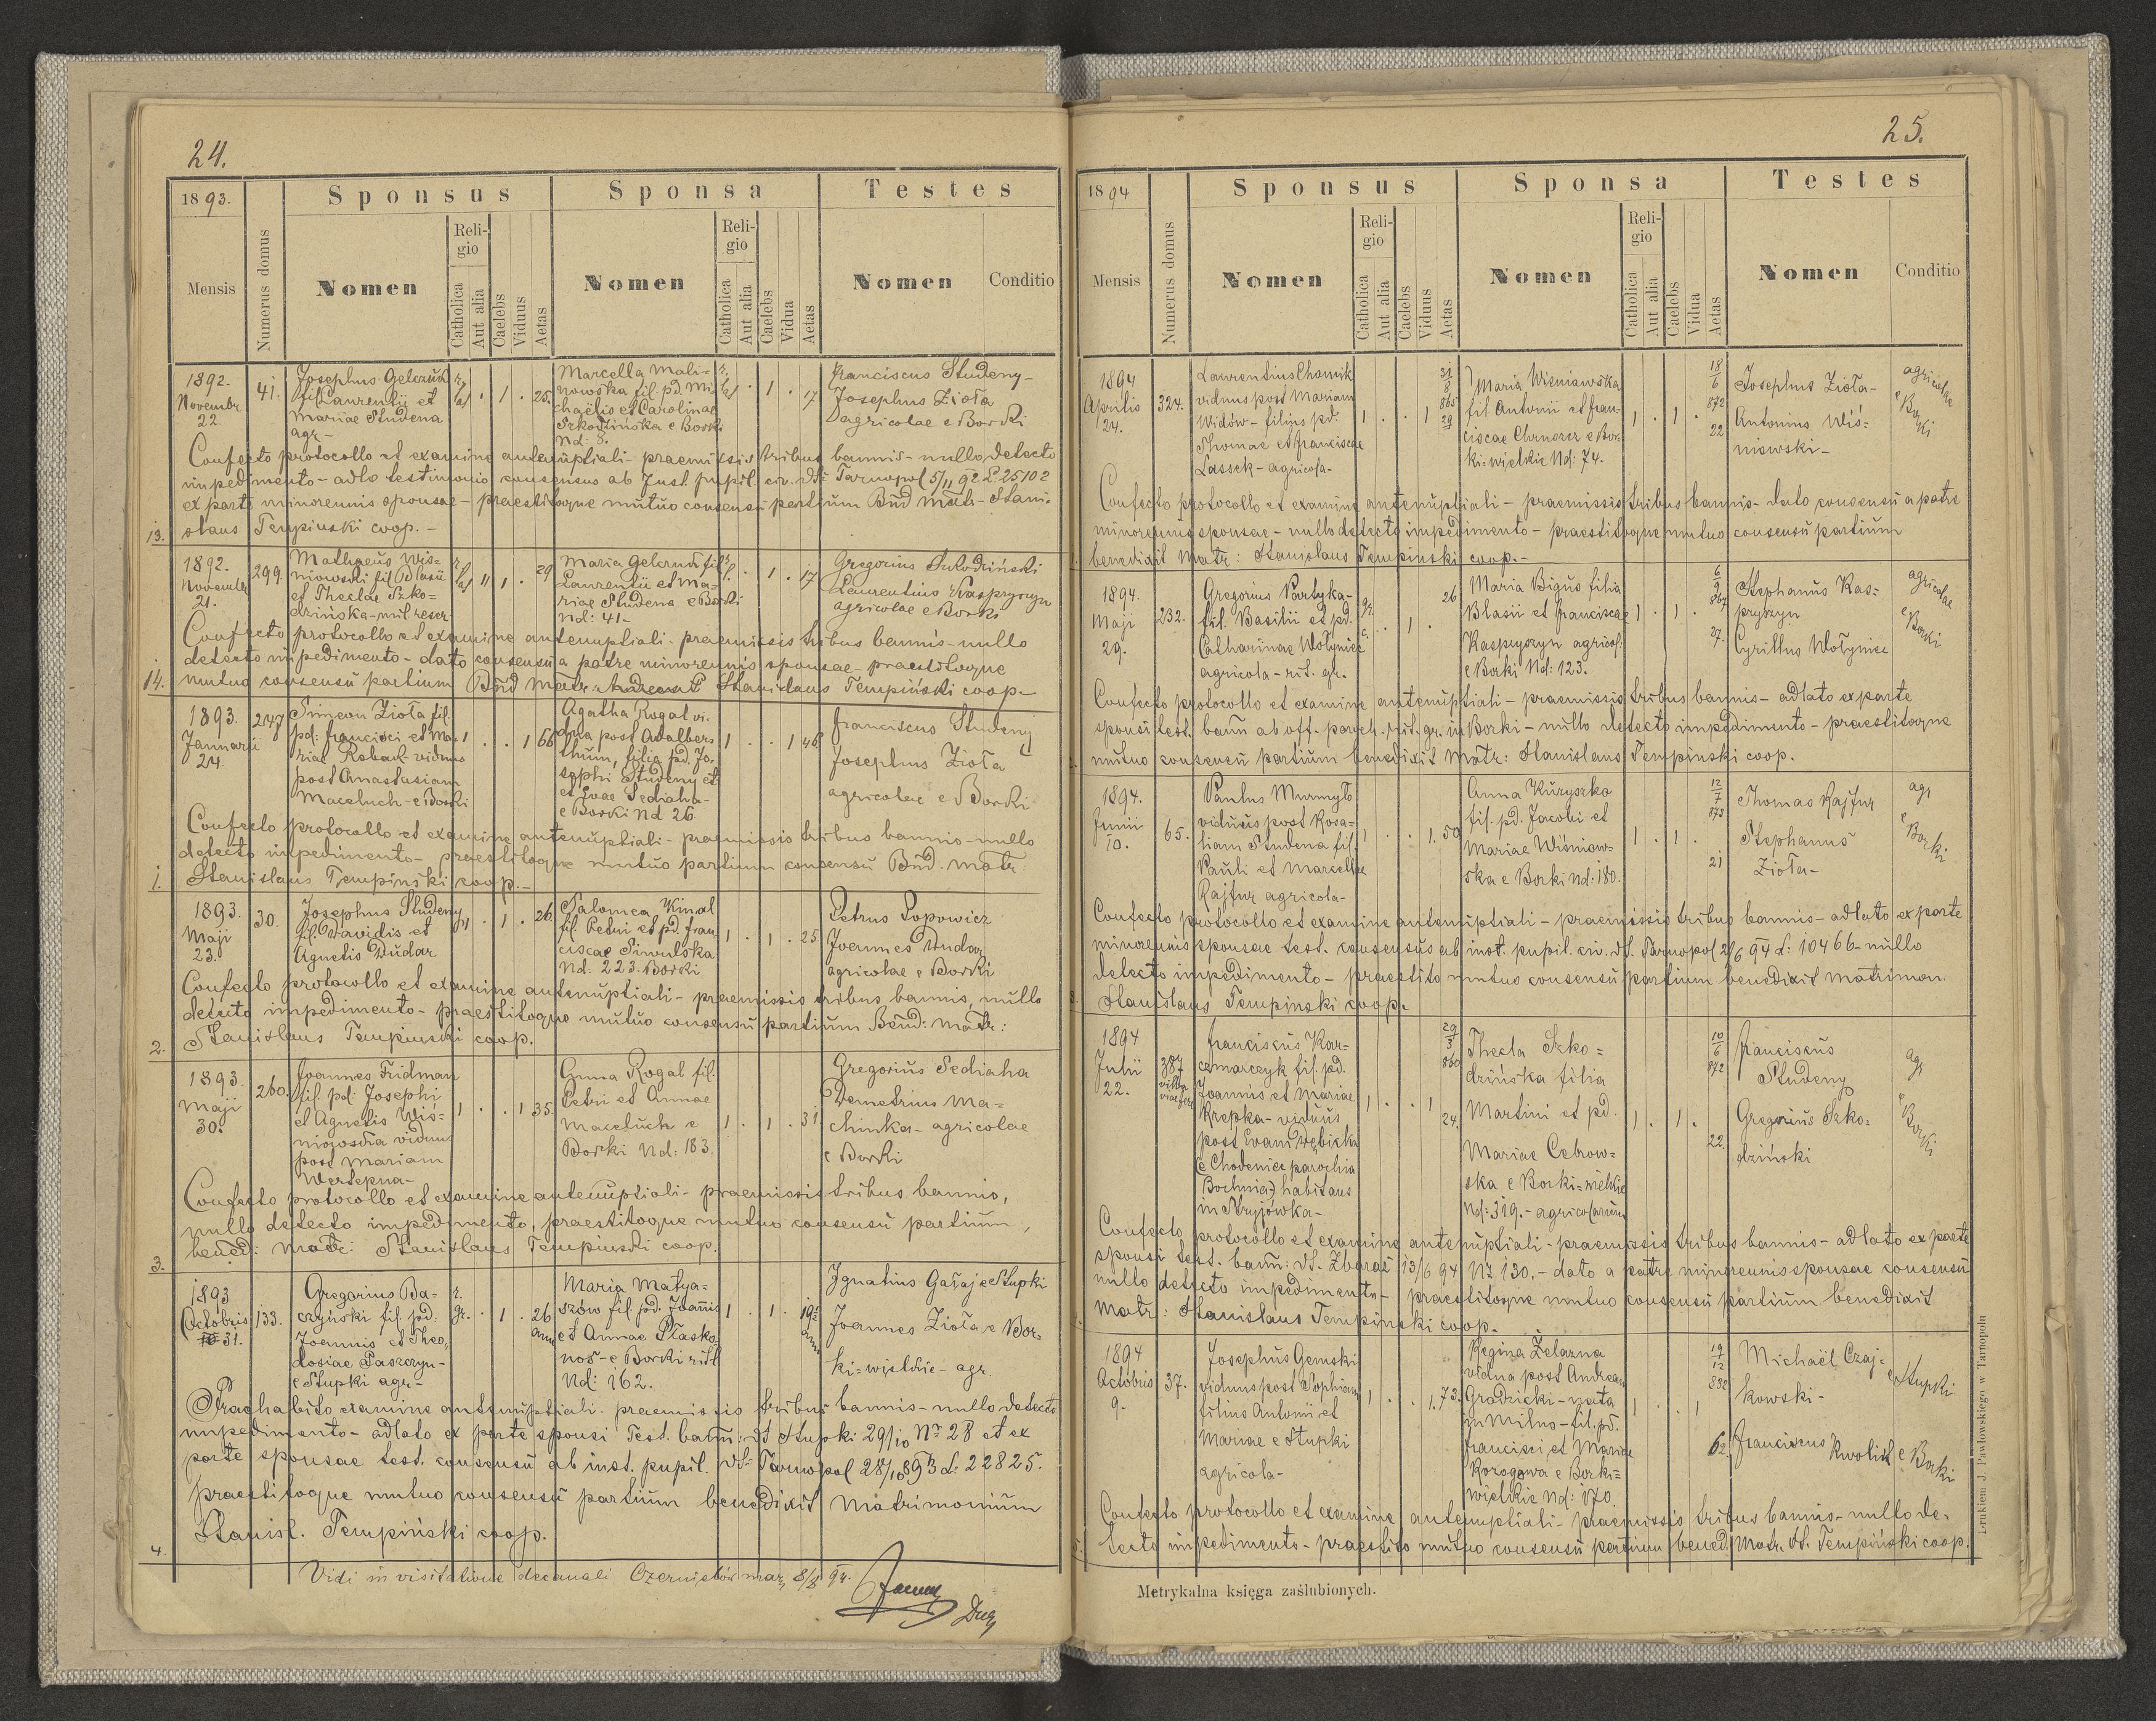 24.
1893.
Mensis
Numerus domus
Sponsus
Nomen
Religio
Catholica
Aut alia
Caelebs
Viduus
Aetas
Sponsa
Nomen
Religio
Catholica
Aut alia
Caelebs
Vidua
Aetas
Testes
Nomen
Conditio
1892.
Novembr.
22.
41.
Josephus Gelczuk
fil Laurentii et
Mariae Studena
agr-
1 25.
Marcella Mali-
nowska fil. pd. Mi-
chaelis et Carolinae
Szkodzińska e Borki
Nd: 8.
1 17
Franciscus Studeny-
Josephus Zioła
agricolae e Borki
Confecto protocollo et examine antenuptiali- praemissis tribus bannis- nullo detecto
impedimento- adlo testimonio consensus ab Inst. pupil. civ. dto Tarnopol 5/11 92 L. 25102
ex parte minorennis sponsae- praestitoque mutuo consensu partium Bnd Matr- Stani-
slaus Tempinski coop. -
13.
1892.
Novembr
21.
299.
Mathaeus Wis-
niowski fil
et Theclae Szko=
dzińska-mil reser-
1 29
Maria Gelczuk fil
Laurentii et Ma-
riae Studena e Borki
Nd: 41-
1 17
Gregorius Szkodziński
Laurentius Kaspryszyn
agricolae e Borki
Confecto protocollo et examine antenuptiali- praemissis tribus bannis- nullo
detecto impedimento- dato consensu a patre minorennis sponsae- praestitoque
mutuo consensu partium Bnd Matr: Stanislaus Tempiński coop-
14.
1893.
Januarii
24.
247
Simeon Zioła fil.
pd: Francisci et Ma-
riae Rebach viduus
post Anastasiam
Maceluch- e Borki
1 . . 1 66
Agatha Rogal vi-
dua post Adalber-
thum, filia pd. Jo-
sephi Studeny et
et Evae Sediaha-
e Borki Nd 26
1 . . 1 46
Franciscus Studeny
Josephus Zioła
agricolae e Borki
Confecto protocollo et examine antenuptiali- praemissis tribus bannis- nullo
detecto impedimento- praestitoque mutuo partium consensu Bnd. Matr.
Stanislaus Tempinski coop.-
1.
1893.
Maji
23.
30.
Josephus Studeny
fil. Davidis et
Agnetis Dudar
1 . 1 . 26
Salomea Kinal
fil. Petri et pd. Fran
ciscae Siwulska
Nd: 223. Borki
1 . 1 . 25
Petrus Popowicz
Joannes Dudar
agricolae e Borki
Confecto protocollo et examine antenuptiali- praemissis tribus bannis, nullo
detecto impedimento- praestitoque mutuo consensu partium Bend: Matr:
Stanislaus Tempinski coop.
2.
1893.
Maji
30.
260.
Joannes Fridman
fil. pd: Josephi
et Agnetis Wiś-
niowska viduus
post Mariam
Wertepna-
1 . . 1 35.
Anna Rogal fil.
Petri et Annae
Maceluch e
Borki Nd: 183.
1 . 1 . 31
Gregorius Sediaha
Demetrius Ma=
chinka- agricolae
e Borki
Confecto protocollo et examine antenuptiali- praemissis tribus bannis,
nullo detecto impedimento, praestitoque mutuo consensu partium,
bened: Matr: Stanislaus Tempinski coop.
3.
1893
Octobris
31.
133.
Gregorius Ba-
czyński fil. pd.
Joannis et Theo,
dosiae Paszczyn-
e Stupki agr-
r.
gr. . 1 . 26
ann
Maria Matya=
szów fil. pd. Joannis
et Annae Płasko
nos- e Borki rit l
Nd: 162.
1 . 1 . 19
Ignatius Garaj e Stupki
Joannes Zioła e Bor-
ki= wielkie- agr.
Praehabito examine antenuptiali. praemissis tribus bannis- nullo detecto
impedimento- adlato ex parte sponsi Test. bann: dt Stupki 29/10 Nr 28 et ex
parte sponsae test. consensu ab inst. pupil. dt Tarnopol 28/10 893 L: 22825.
praestitoque mutuo consensu partium benedixit matrimonium
Stanisl. Tempiński coop.
4.
Vidi in visitatione decanali
25.
1894
Mensis
Numerus domus
Sponsus
Nomen
Religio
Catholica
Aut alia
Caelebs
Viduus
Aetas
Sponsa
Nomen
Religio
Catholica
Aut alia
Caelebs
Vidua
Aetas
Testes
Nomen
Conditio
1894
Aprilis
24.
324.
Laurentius Chomik
viduus post Mariam
Widów- filius pd.
Thomae et Franciscae
Lassek- agricola-
1 . . 1
31
8
865
29
Maria Wisniawska
fil Antonii et Fran-
ciscae Chruszcz e Bor-
ki=wielkie Nd: 74.
1 . 1 .
18
6
872
22
Josephus Zioła-
Antonius Wiś-
niowski-
agricolae
e Borki
Confecto protocollo et examine antenuptiali- praemissis tribus bannis- dato consensu a patre
minorennis sponsae- nullo detecto impedimento- praestitoque mutuo consensu partium
benedixit Matr: Stanislaus Tempinski coop.-
1894.
Maji
29.
232.
Gregorius Partyka-
fil. Basilii et pd.
Catharinae Wołyniec
agricola- rit. gr.
gr.
c. . 1 . 26
Maria Bigus filia
Blasii et Franciscae
Kaspryszyn agricol:
e Borki Nd: 123.
1 . 1 .
6
9
867
27.
Stephanus Kas-
pryszyn
Cyrillus Wołyniec
agricolae
e Borki
Confecto protocollo et examine antenuptiali- praemissis tribus bannis- adlato ex parte
sponsi test. bann ab off. paroch. rit. gr. in Borki- nullo detecto impedimento- praestitoque
mutuo consensu partium benedixit Matr: Stanislaus Tempinski coop.
1894.
Junii
10.
65.
Paulus Murmyło
viduus post Rosa=
liam Studena fil.
Pauli et Marcellae
Rajfur agricola-
1 . . 1. 50
Anna Kuryszko
fil. pd. Jacobi et
Mariae Wiśniow-
ska e Borki Nd: 180.
1 . 1 .
12
7
873
21
Thomas Rajfur
Stephanus
Zioła-
agr
e Borki
Confecto protocollo et examine antenuptiali- praemissis tribus bannis- adlato ex parte
minorennis sponsae test. consensus ab inst. pupil. civ. dt. Tarnopol 2/6 94 L: 10466- nullo
detecto impedimento- praestito mutuo consensu partium benedixit matrimon.
3. Stanislaus Tempinski coop.
1894
Julii
22.
387
Franciscus Kar=
czmarczyk fil. pd.
Joannis et Mariae
Krepka- viduus
post Evam Dębicka
(e Chodenice parochia
Bochnia) habitans
in Stryjówka-
1 . . 1
29
3
860
24.
Thecla Szko=
dzińska filia
Martini et pd.
Mariae Cebrow=
ska e Borki=wielkie
Nd: 319.- agricolarum
1 . 1 .
10
6
872
22.
Franciscus
Studeny
Gregorius Szko=
dziński
agr
e Borki
Confecto protocollo et examine antenuptiali- praemissis tribus bannis- adlato ex parte
sponsi test. bann: dt. Zbaraż 13/6 94 Nr 130.- dato a patre minorennis sponsae consensu
nullo detecto impedimento- praestitoque mutuo consensu partium benedixit
Matr: Stanislaus Tempinski coop.
1894
Octobris
9-
37.
Josephus Gemski
viduus post Sophiam
filius Antonii et
Mariae e Stupki
agricola-
1 . . 1. 73.
Regina Żelazna
vidua post Andream
Grodzicki- nata
in Milno- fil. pd.
Francisci et Mariae
Korogowa e Borki=
wielkie Nd: 170.
1 . . 1
17
12
832
62
Michaël Czaj-
kowski-
Franciscus Kwolik
e Stupki
e Borki
Confecto protocollo et examine antenuptiali- praemissis tribus bannis- nullo de-
tecto impedimento- praestito mutuo consensu partium bened. Matr. St. Tempiński coop.
Metrykalna księga zaślubionych.
Drukiem J. Pawłowskiego w Tarnopolu